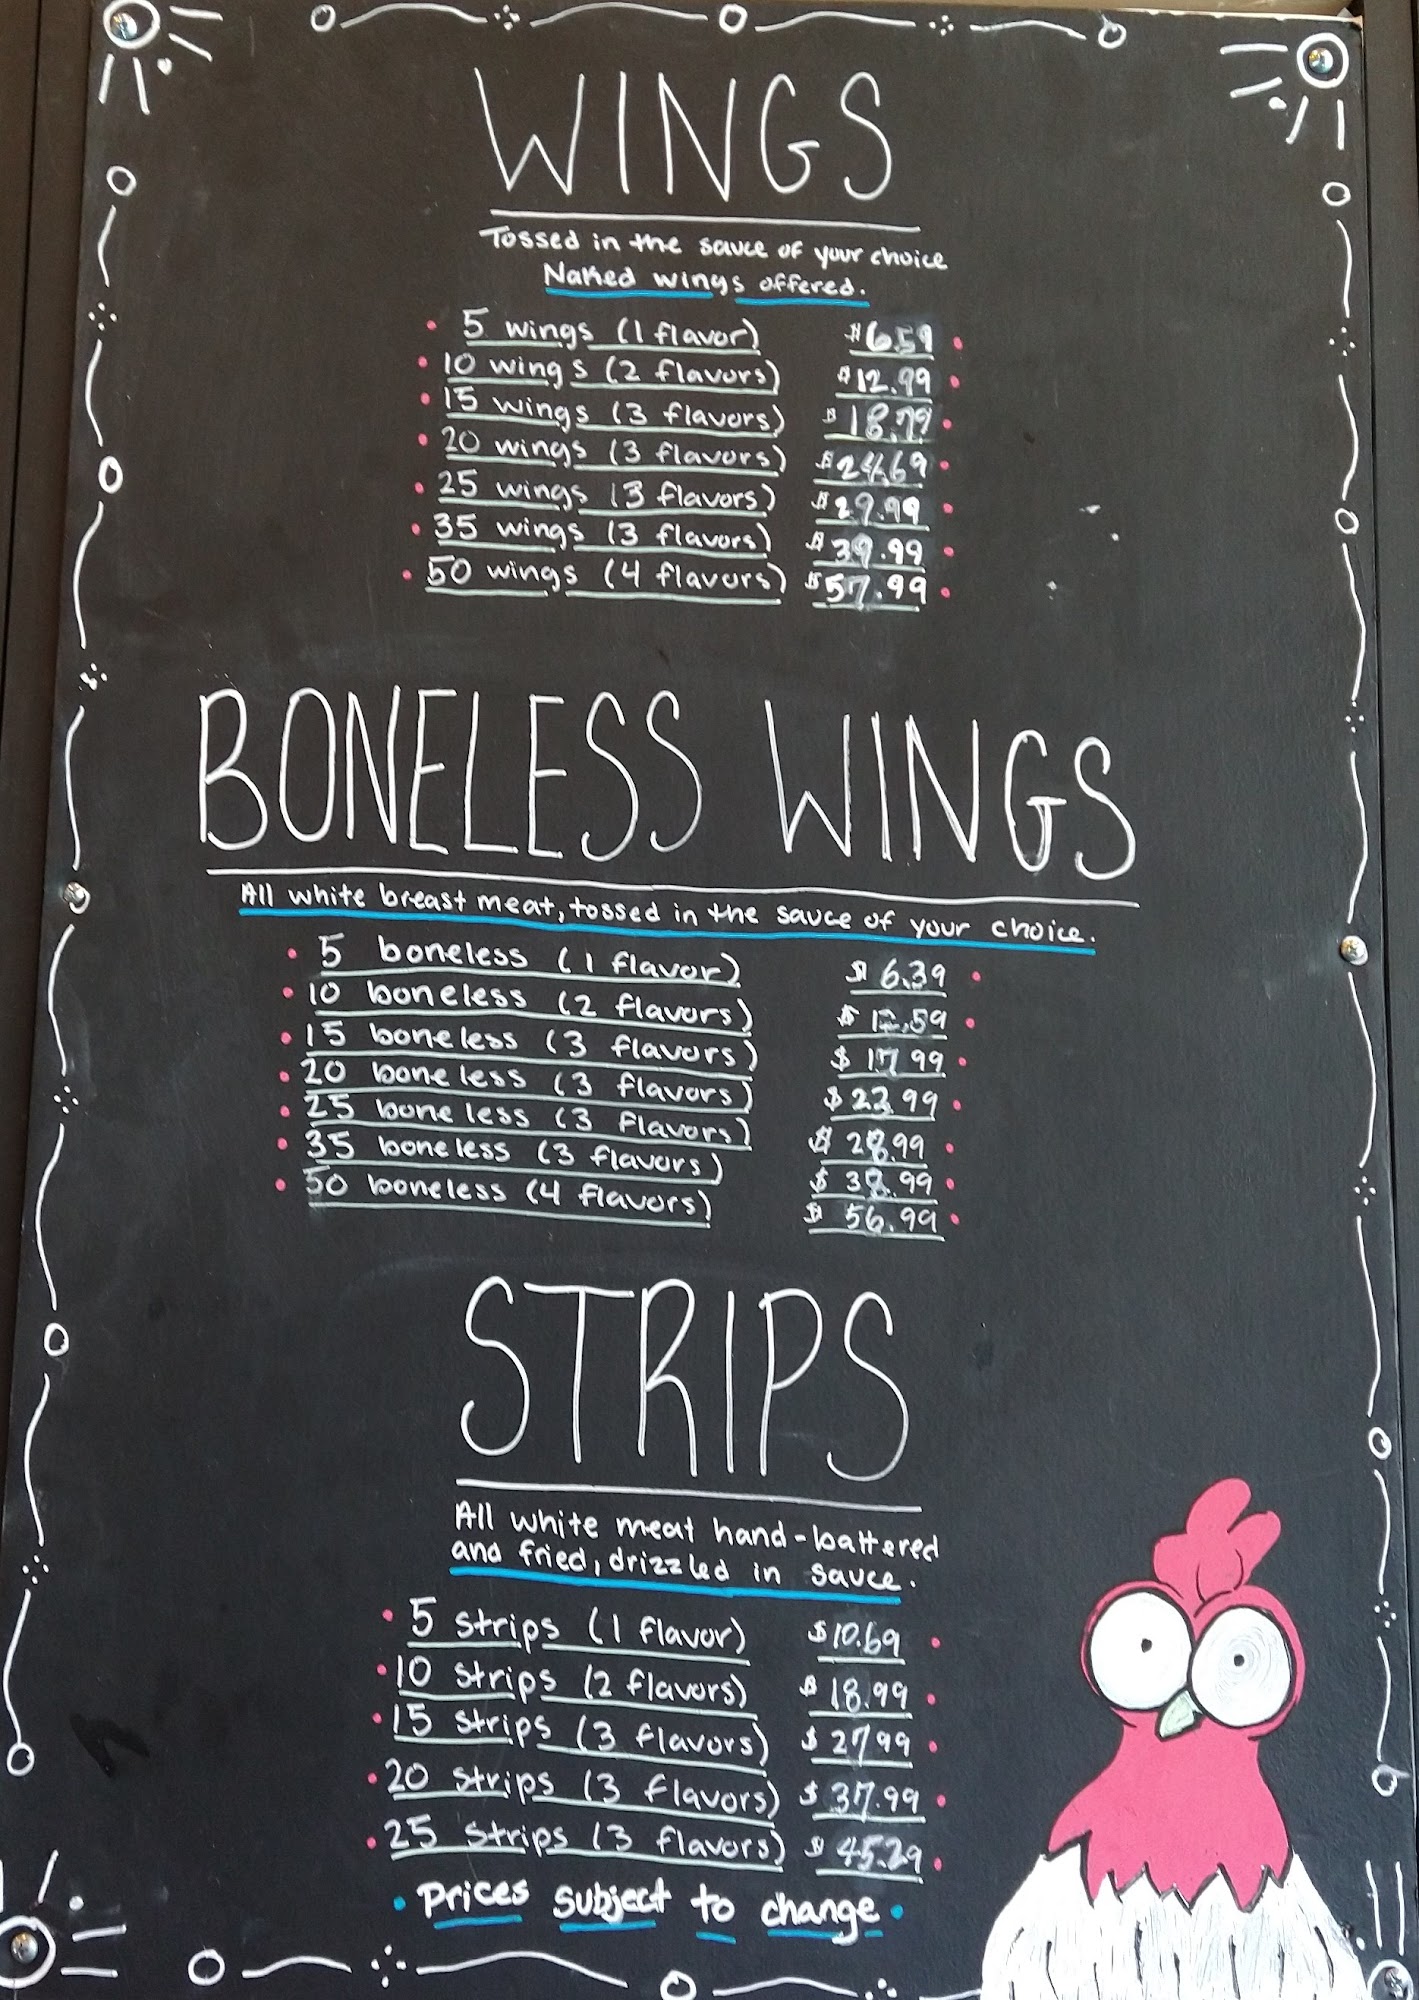 WINGS
Tossed in the sauce of your choice
Naked wings offered.
5 wings (1 flavor) $6.59
10 wings (2 flavors) $12.99
15 wings (3 flavors) $18.79
20 wings (3 flavors) $24.69
25 wings (3 flavors) $29.99
35 wings (3 flavors) $39.99
50 wings (4 flavors) $57.99
BONELESS WINGS
All white breast meat, tossed in the sauce of your choice.
5 boneless (1 flavor) $6.39
10 boneless (2 flavors) $12.59
15 boneless (3 flavors) $17.99
20 boneless (3 flavors) $23.99
25 boneless (3 flavors) $28.99
35 boneless (3 flavors) $38.99
50 boneless (4 flavors) $56.99
STRIPS
All white meat hand-battered
and fried, drizzled in sauce.
5 strips (1 flavor) $10.69
10 strips (2 flavors) $18.99
15 strips (3 flavors) $27.99
20 strips (3 flavors) $37.99
25 strips (3 flavors) $45.29
Prices subject to change